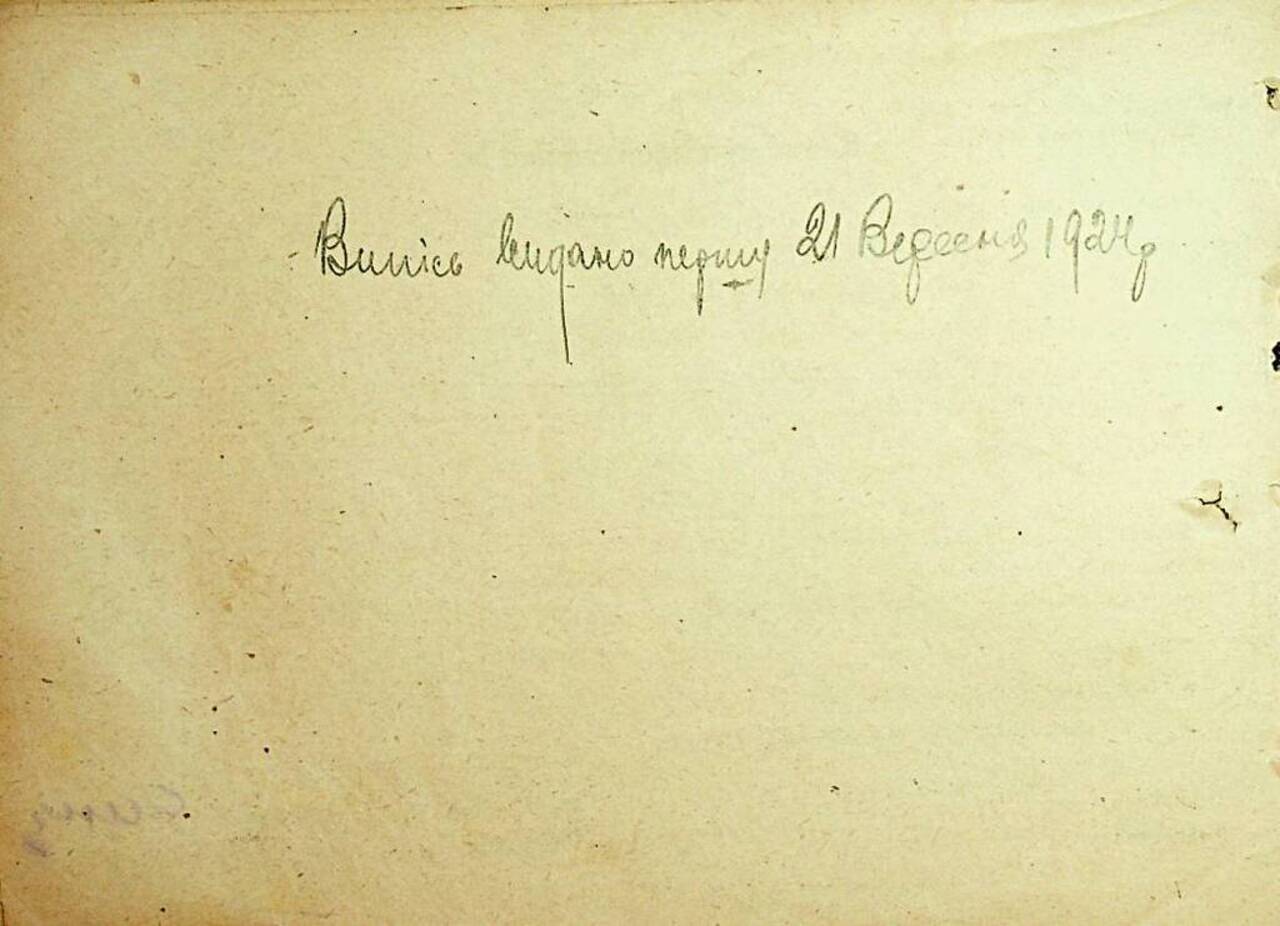 Випісь видано першу 21 Вересня 1924 р